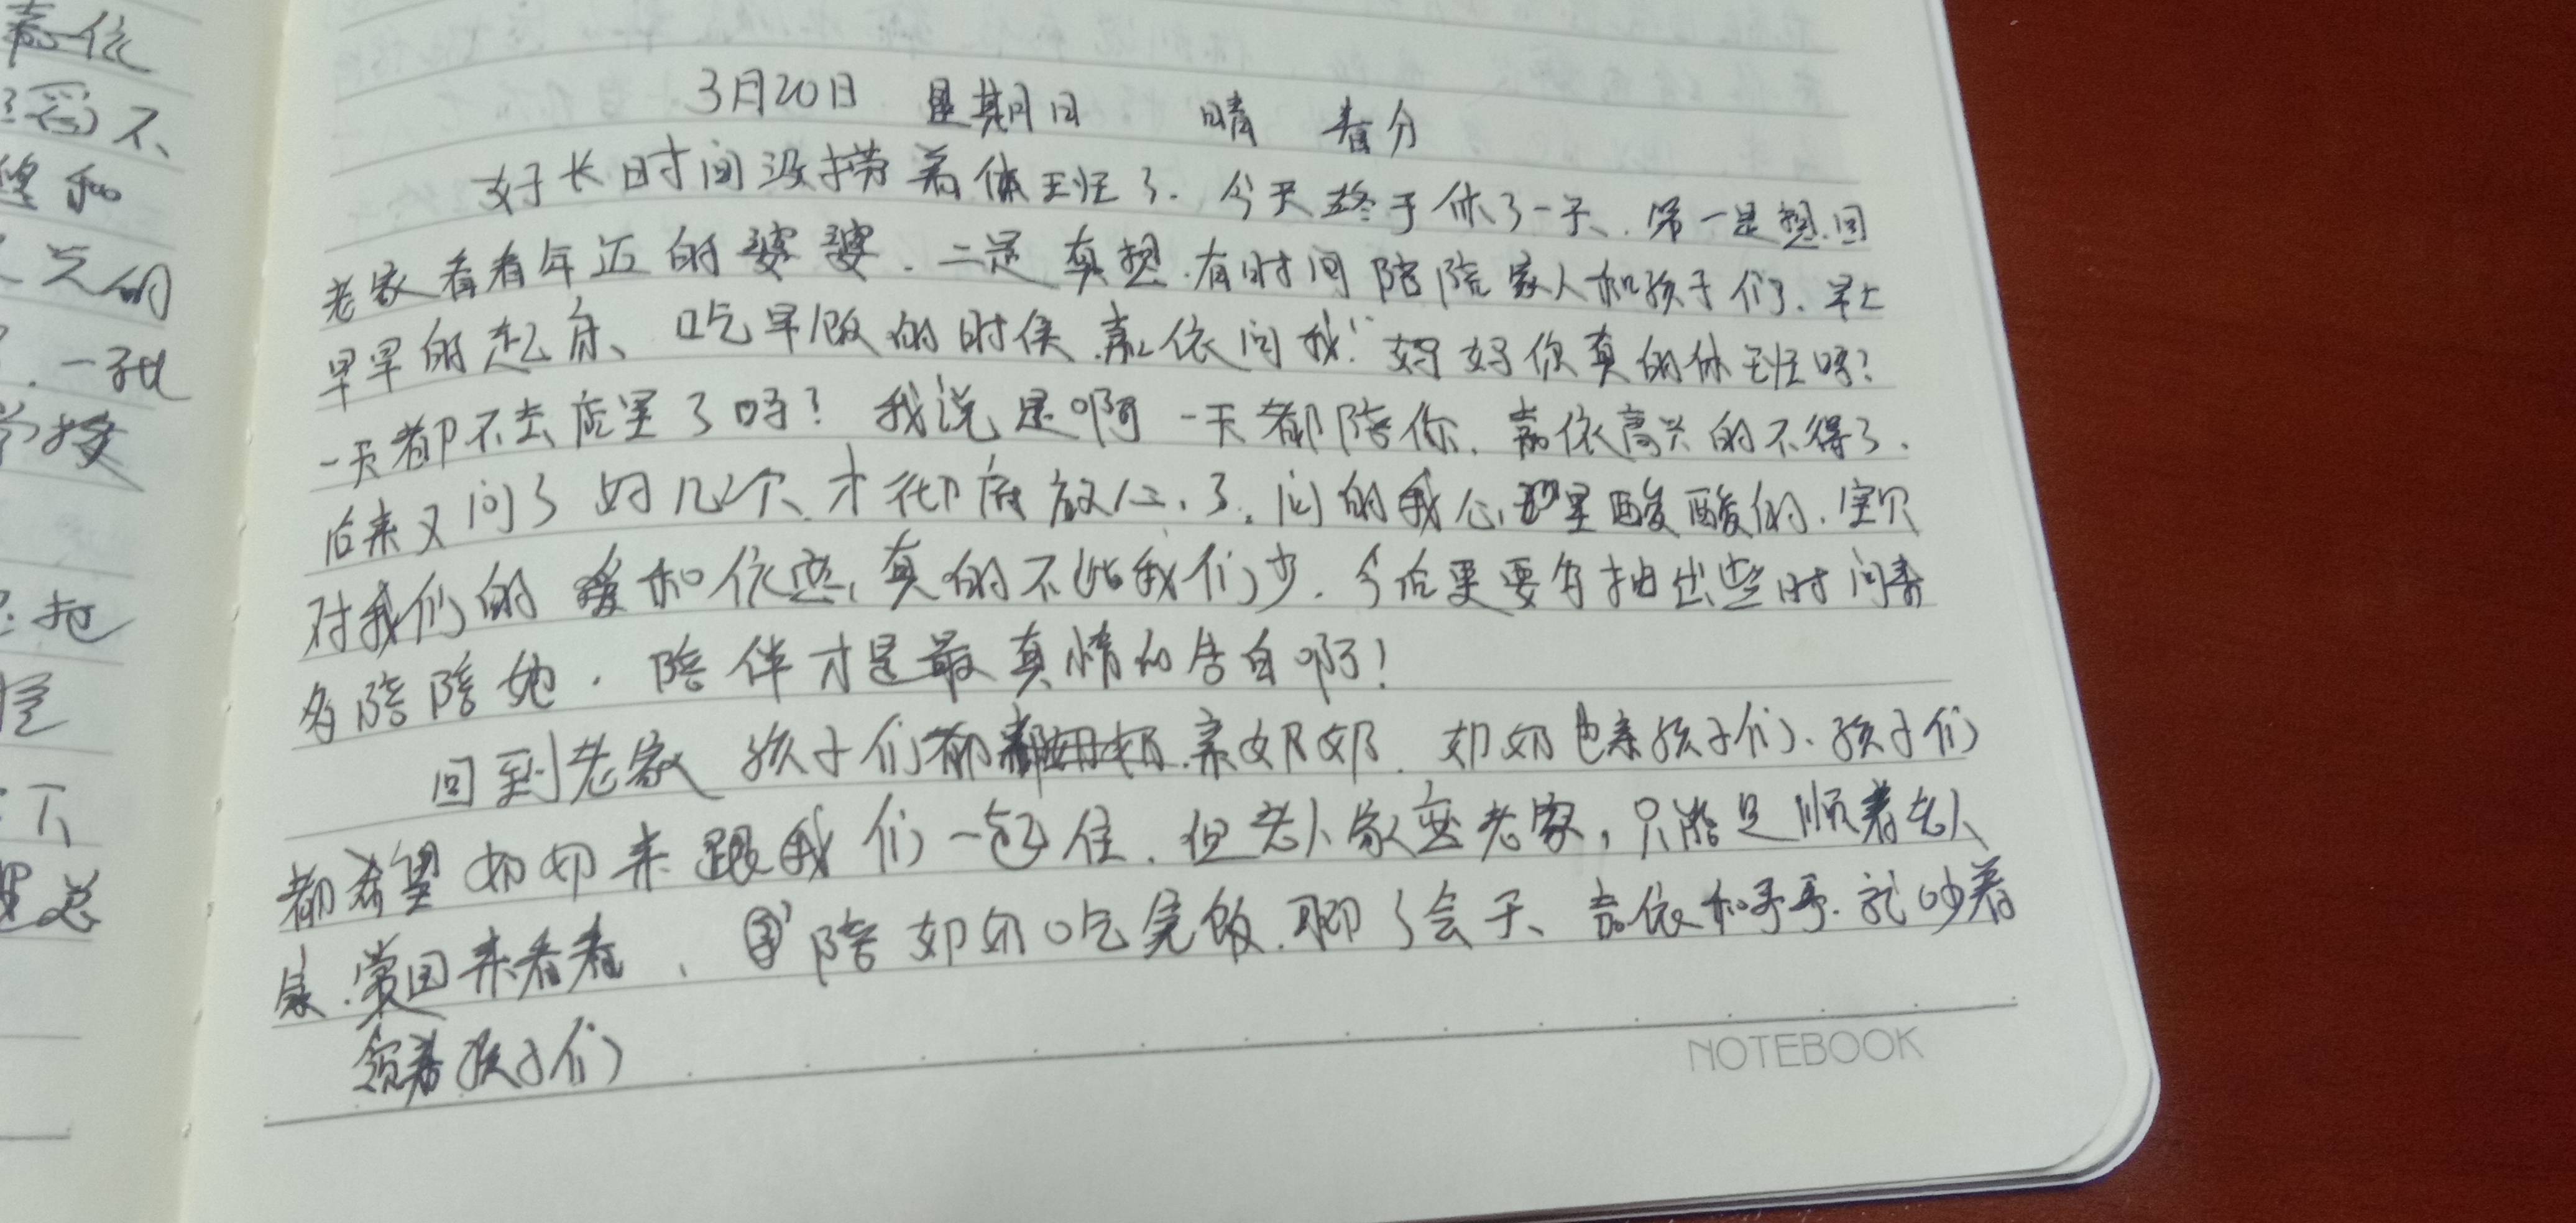 嘉依
不
和
的
一
接
把
下
总
3月20日 星期日 晴 春分
好长时间没捞着休班了.今天终于休了一天、第一是想回
老家看看年迈的婆婆.二是真想.有时间陪陪家人和孩子们.早上
早早的起床、吃早饭的时候.嘉依问我:"妈妈你真的休班吗?
一天都不去店里了吗?我说是啊一天都陪你.嘉依高兴的不得了.
后来又问了好几个、才彻底放心了.问的我心里酸酸的.宝贝
对我们的爱和依恋,真的不比我们少.今后更要多抽出些时间来
多陪陪她.陪伴才是最真情的告白啊!
回到老家孩子们都亲奶奶.奶奶也亲孩子们、孩子们
都希望奶奶来跟我们一起住.但老人家恋老家,只能是顺着老人
家.常回来看看、陪奶奶吃完饭.聊了会天、嘉依和哥哥.就吵着
领着孩子们
NOTEBOOK